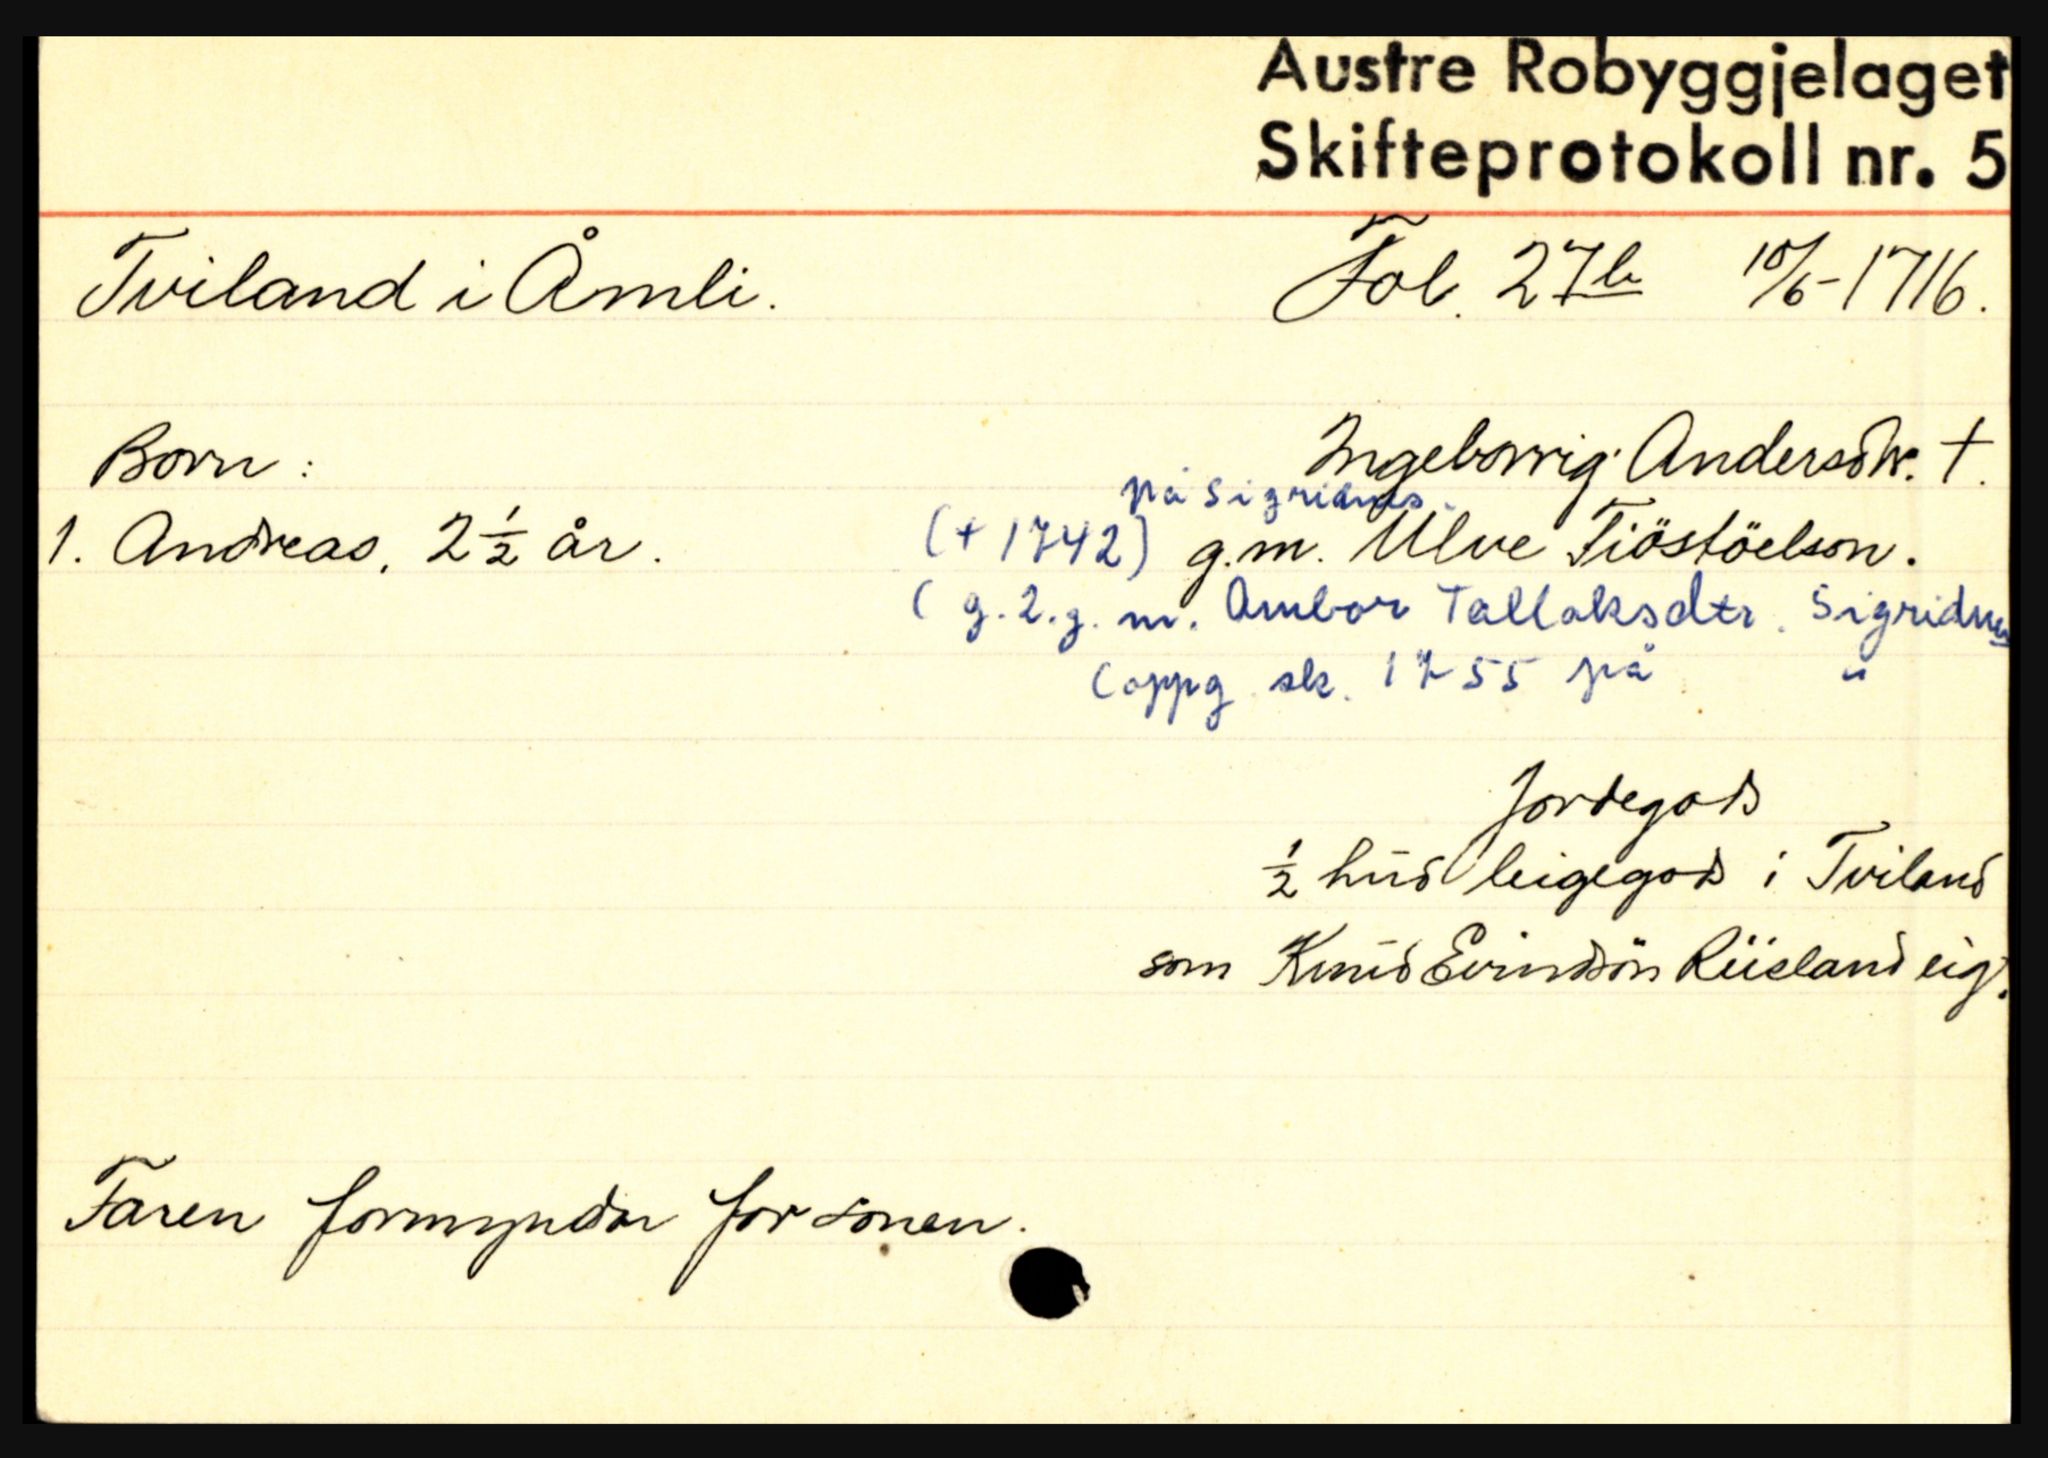 Austre Robyggjelaget
Skifteprotokoll nr. 5
Tviland i Åmli.
Fol. 27b 10/6-1716.
Born:
1. Andreas, 2 1/2 år.
Ingeborrig Andersdtr. †.
på Sigridnes.
(+ 1742) g.m. Ulve Tiöstöelson.
( g. 2. g. m. Ambor Tallaksdtr. Sigridnes
(oppg sk. 1755 på "
Jordegods
1/2 hud leigegods i Tviland
som Knud Evindsön Riisland eig.
Faren formyndar for sonen.